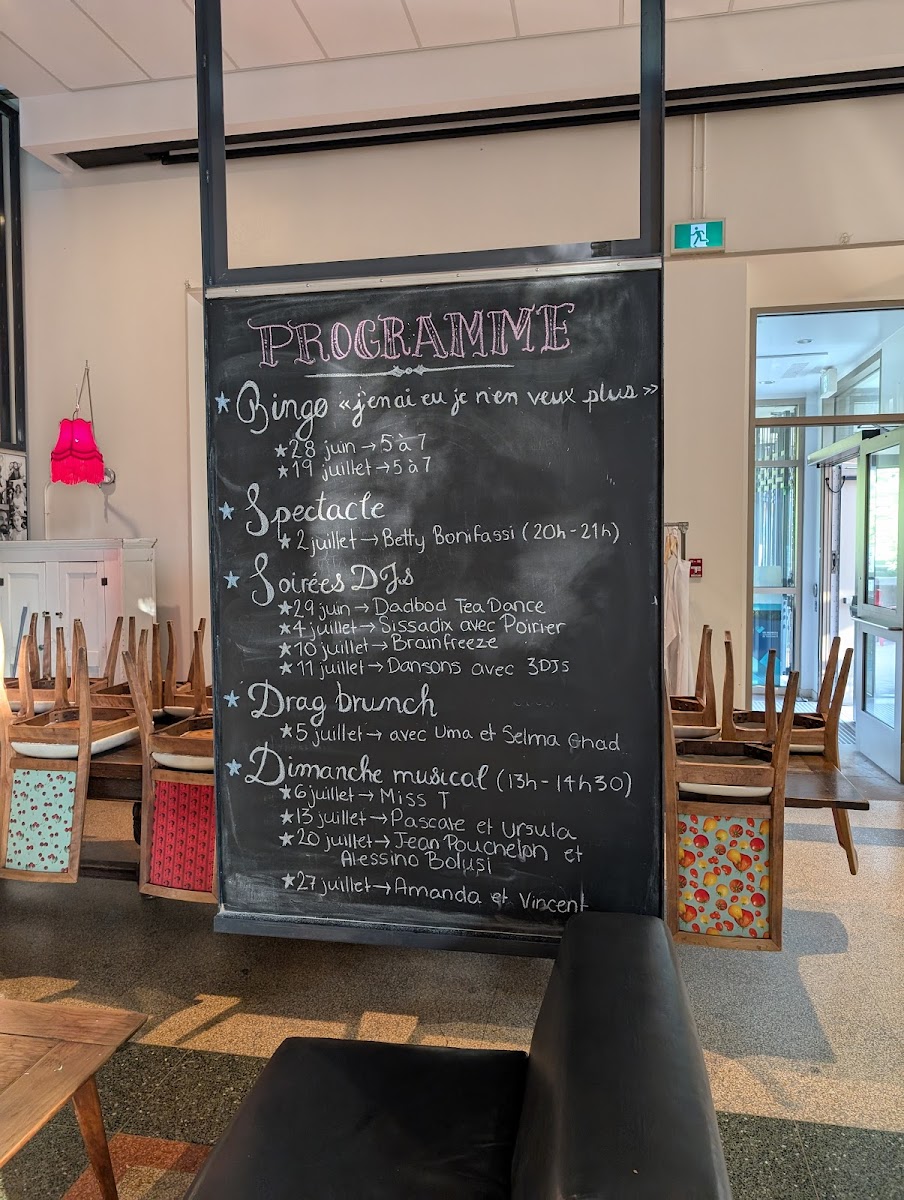 PROGRAMME
★ Bingo «j'en ai eu je n'en veux plus»
★28 juin → 5 à 7
★19 juillet → 5 à 7
★ Spectacle
★2 juillet → Betty Bonifassi (20h-21h)
★ Soirées DJs
★29 juin → Dadbod Tea Dance
★4 juillet → Sissadix avec Poirier
★10 juillet → Brainfreeze
★11 juillet → Dansons avec 3DJs
★ Drag brunch
★5 juillet → avec Uma et Selma Ghad
★ Dimanche musical (13h-14h30)
★6 juillet → Miss T
★13 juillet → Pascale et Ursula
★20 juillet → Jean Pouchelon et
Alessino Bolusi
★27 juillet → Amanda et Vincent